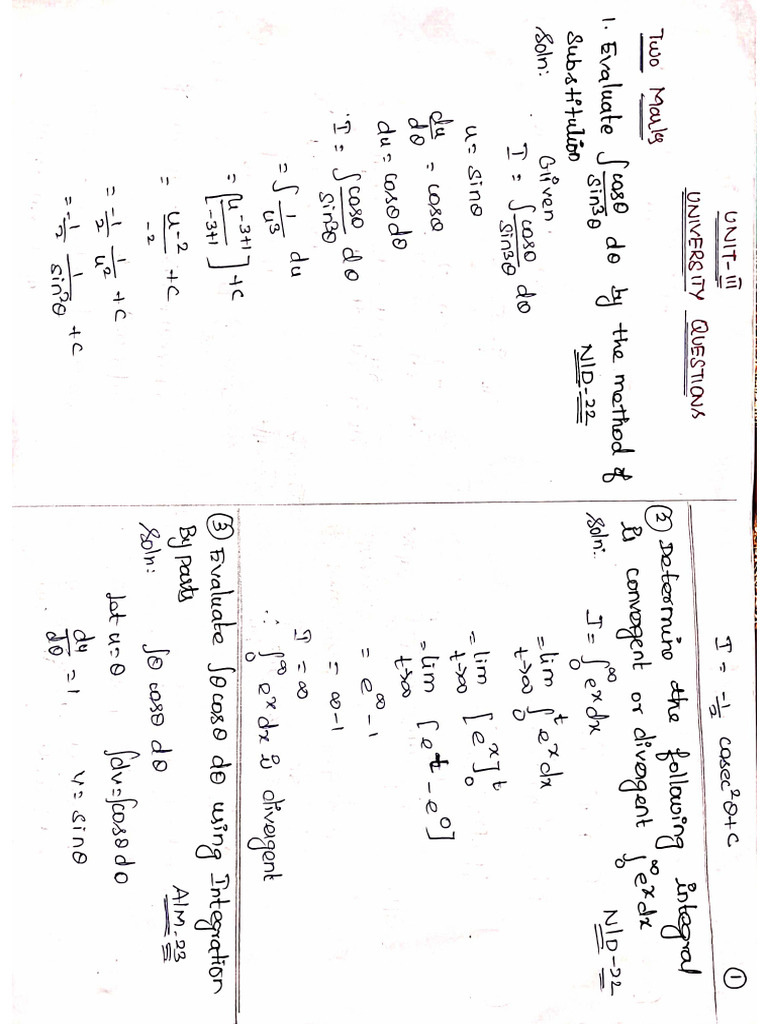 UNIT-III
UNIVERSITY QUESTIONS
Two Marks
1. Evaluate ∫ cosθ/sin³θ dθ by the method of
substitution N/D-22
Soln:
Given
I = ∫ cosθ/sin³θ dθ
u = sinθ
du/dθ = cosθ
du = cosθ dθ
I = ∫ cosθ/sin³θ dθ
= ∫ 1/u³ du
= [u^(-3+1)/(-3+1)] + c
= u^(-2)/-2 + c
= -1/2 1/u² + c
= -1/2 1/sin²θ + c
I = -1/2 cosec²θ + c
①
② Determine the following integral
is convergent or divergent ∫₀^∞ e^x dx
N/D-22
Soln:
I = ∫₀^∞ e^x dx
= lim t→∞ ∫₀^t e^x dx
= lim t→∞ [e^x]₀^t
= lim t→∞ [e^t - e^0]
= e^∞ - 1
= ∞ - 1
I = ∞
∴ ∫₀^∞ e^x dx is divergent
③ Evaluate ∫θ cosθ dθ using Integration
By parts A/M-23
Soln:
∫θ cosθ dθ
Let u = θ ∫dv = ∫cosθ dθ
du/dθ = 1 v = sinθ